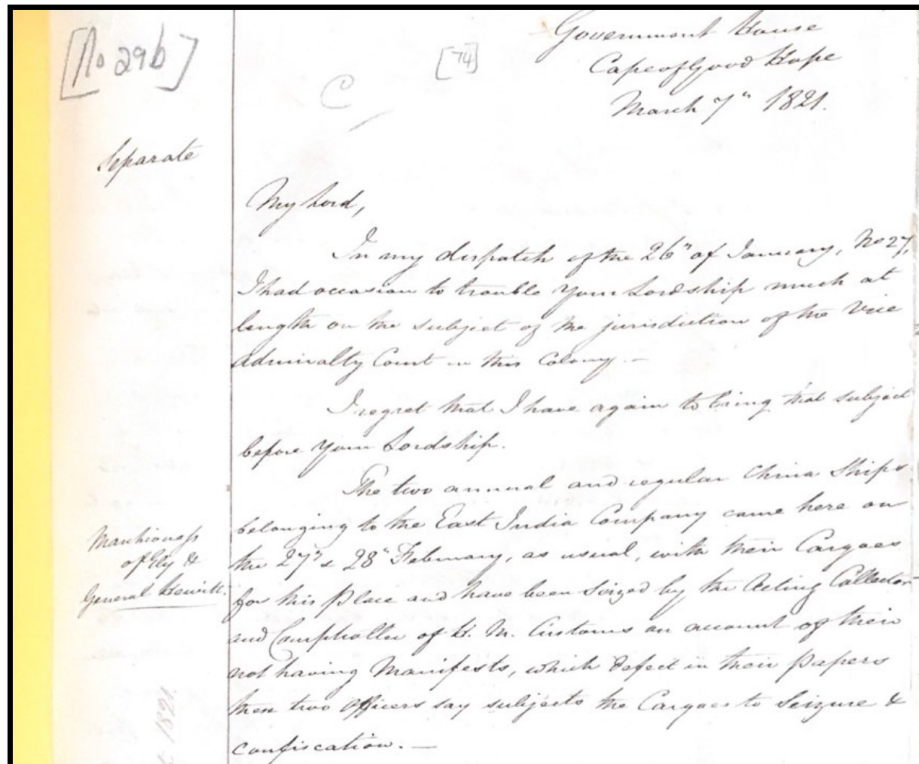 [No 29b]
[74]
C
Government House
Cape of Good Hope
March 7th 1821.
Separate
My Lord,
In my dispatch of the 26th of January, No 27,
I had occasion to trouble Your Lordship much at
length on the subject of the jurisdiction of the Vice
Admiralty Court in this Colony. —
I regret that I have again to bring that subject
before Your Lordship.
The two annual and regular China Ships
belonging to the East India Company came here on
the 27th & 28th February, as usual, with their Cargoes
for this place and have been Seized by the Acting Collector
and Comptroller of H. M. Customs on account of their
not having Manifests, which defect in their papers
these two Officers say subjects the Cargoes to Seizure &
confiscation. —
Marchioness
of Ely &
General Hewitt.
1821